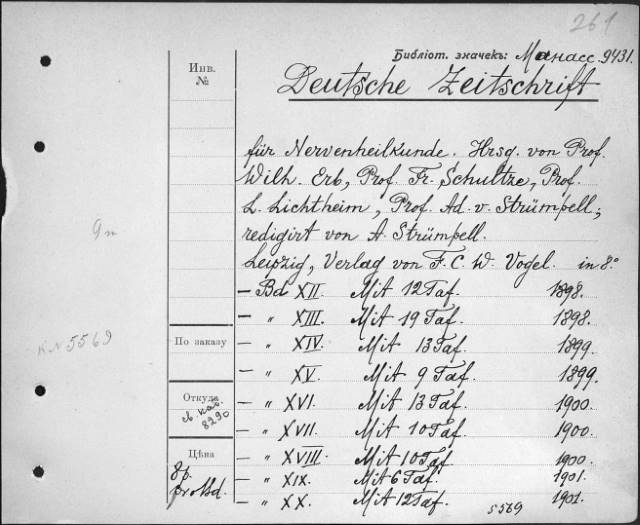 261
Библіот. значекъ: Манасс. 9431.
Deutsche Zeitschrift
für Nervenheilkunde. Hrsg. von Prof.
Wilh. Erb, Prof. Fr. Schultze, Prof.
L. Lichtheim, Prof. Ad. v. Strümpell;
redigirt von A. Strümpell.
Leipzig, Verlag von F. C. W. Vogel. in 8.°
— Bd XII. Mit 12 Taf. 1898.
— „ XIII. Mit 19 Taf. 1898.
— „ XIV. Mit 13 Taf. 1899.
— „ XV. Mit 9 Taf. 1899.
— „ XVI. Mit 13 Taf. 1900.
— „ XVII. Mit 10 Taf. 1900.
— „ XVIII. Mit 10 Taf. 1900.
— „ XIX. Mit 6 Taf. 1901.
— „ XX. Mit 12 Taf. 1901.
5569
Инв.
№
По заказу
Откуда
св. кат.
8290
Цѣна
8р.
pro Bd.
KN 5569